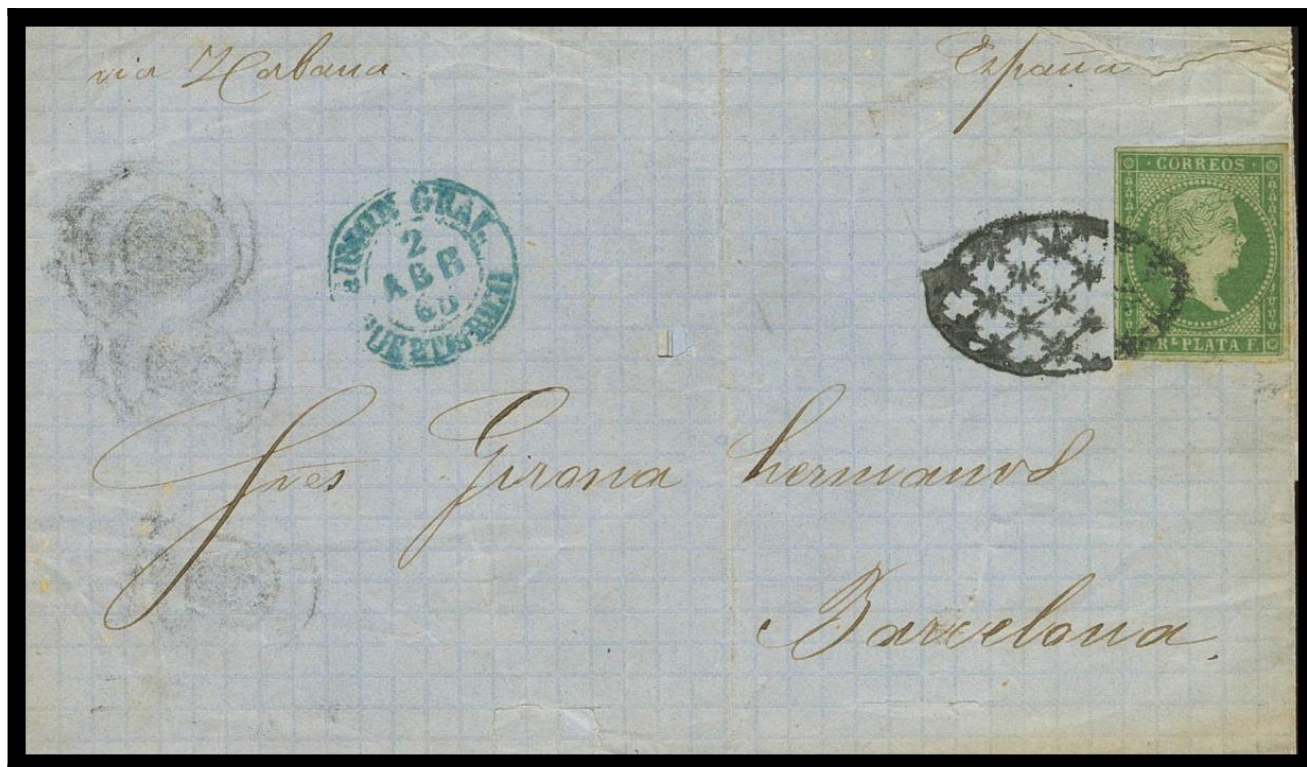 via Habana.
España
· CORREOS ·
RL PLATA F.
GRAL.
2
ABR
60
Sres Girona hermanos
Barcelona.